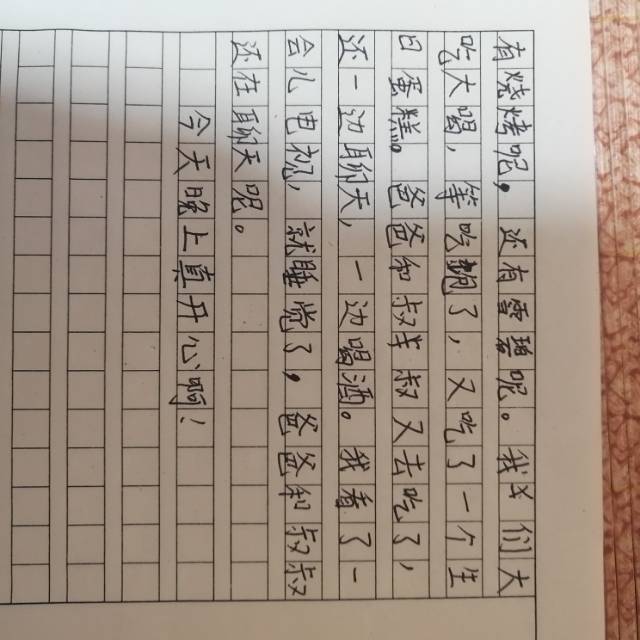 有烧烤呢，还有雪碧呢。我们大
吃大喝，等吃饱了，又吃了一个生
日蛋糕。爸爸和叔叔又去吃了，
还一边聊天，一边喝酒。我看了一
会儿电视，就睡觉了，爸爸和叔叔
还在聊天呢。
今天晚上真开心啊！